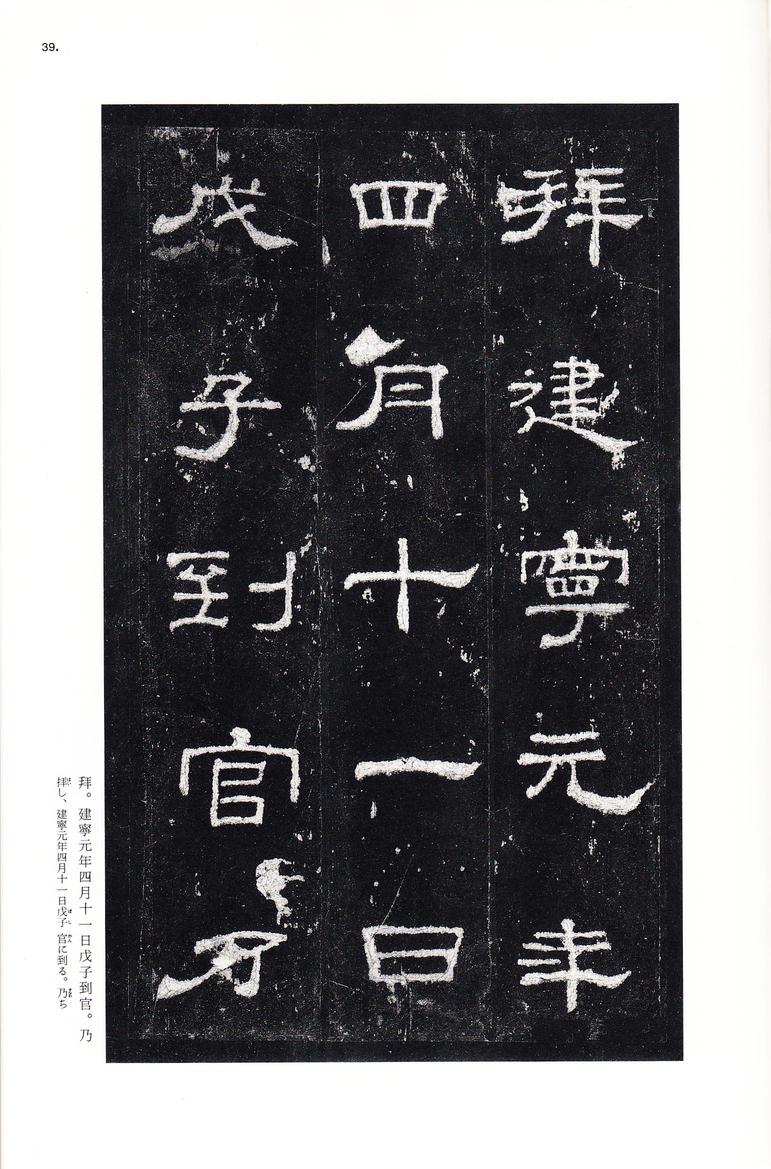 39.
拜建寧元年
四月十一日
戊子到官乃
拜。建寧元年四月十一日戊子到官。乃
拝し、建寧元年四月十一日戊子官に到る。乃ち